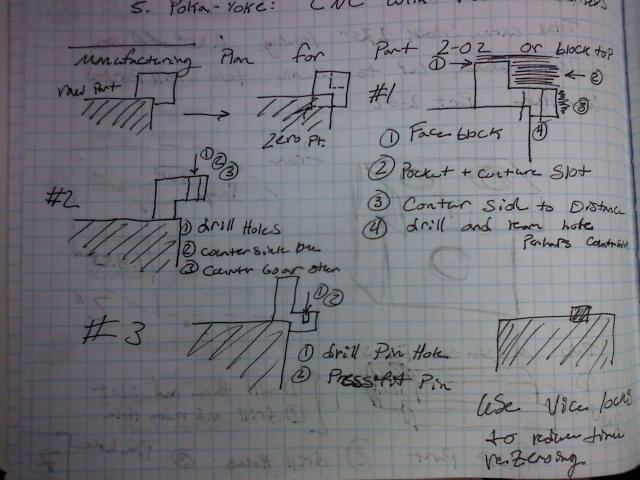 5. Poka-Yoke: CNC
Manufacturing Plan for Part 2-02 or block top
raw part
Zero Pt.
#1
① ② ③ ④
① Face block
② Pocket + conture Slot
③ Contur Side to Distance
④ drill and ream hole
Perhaps countersink
#2
① ② ③
① drill Holes
② countersink one
③ counter boar other
#3
① ②
① drill Pin Hole
② Press fit Pin
Use Vice locks
to reduce time
rezeroing